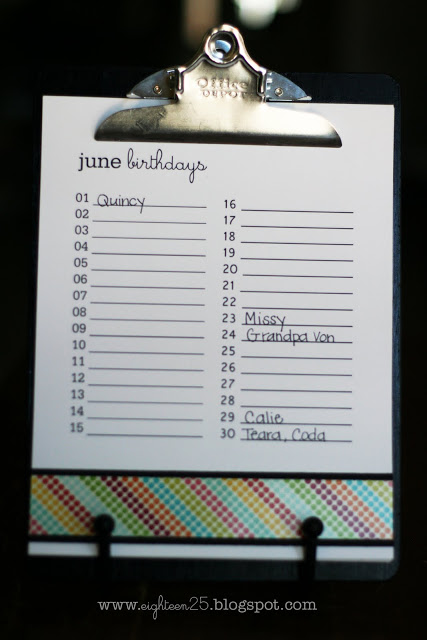 Office
DEPOT
june birthdays
01 Quincy
02
03
04
05
06
07
08
09
10
11
12
13
14
15
16
17
18
19
20
21
22
23 Missy
24 Grandpa Von
25
26
27
28
29 Calie
30 Teara, Coda
www.eighteen25.blogspot.com